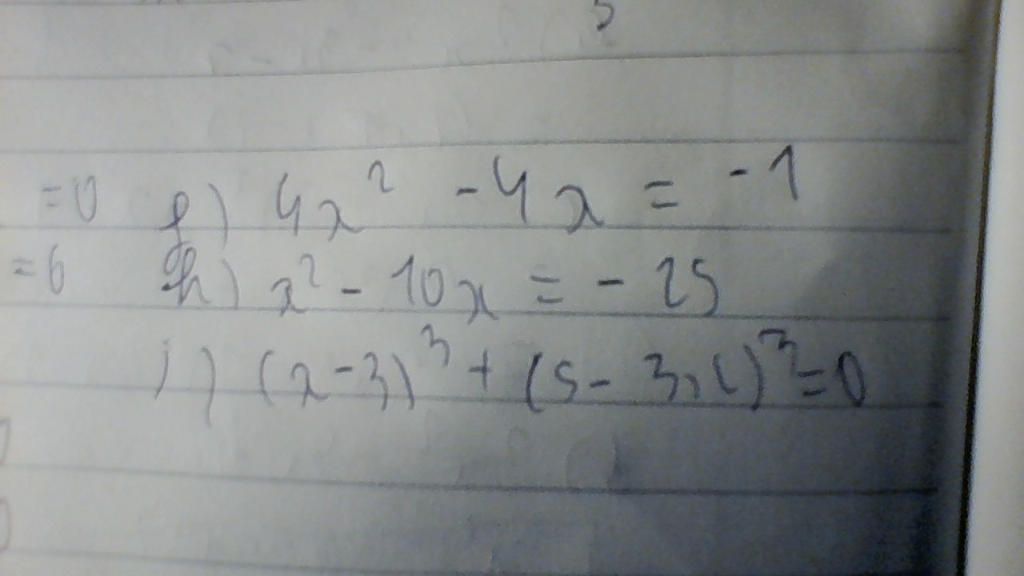 5
=0 g) 4x² - 4x = -1
=6 h) x² - 10x = - 25
i) (x-3)³ + (5 - 3x)³ = 0